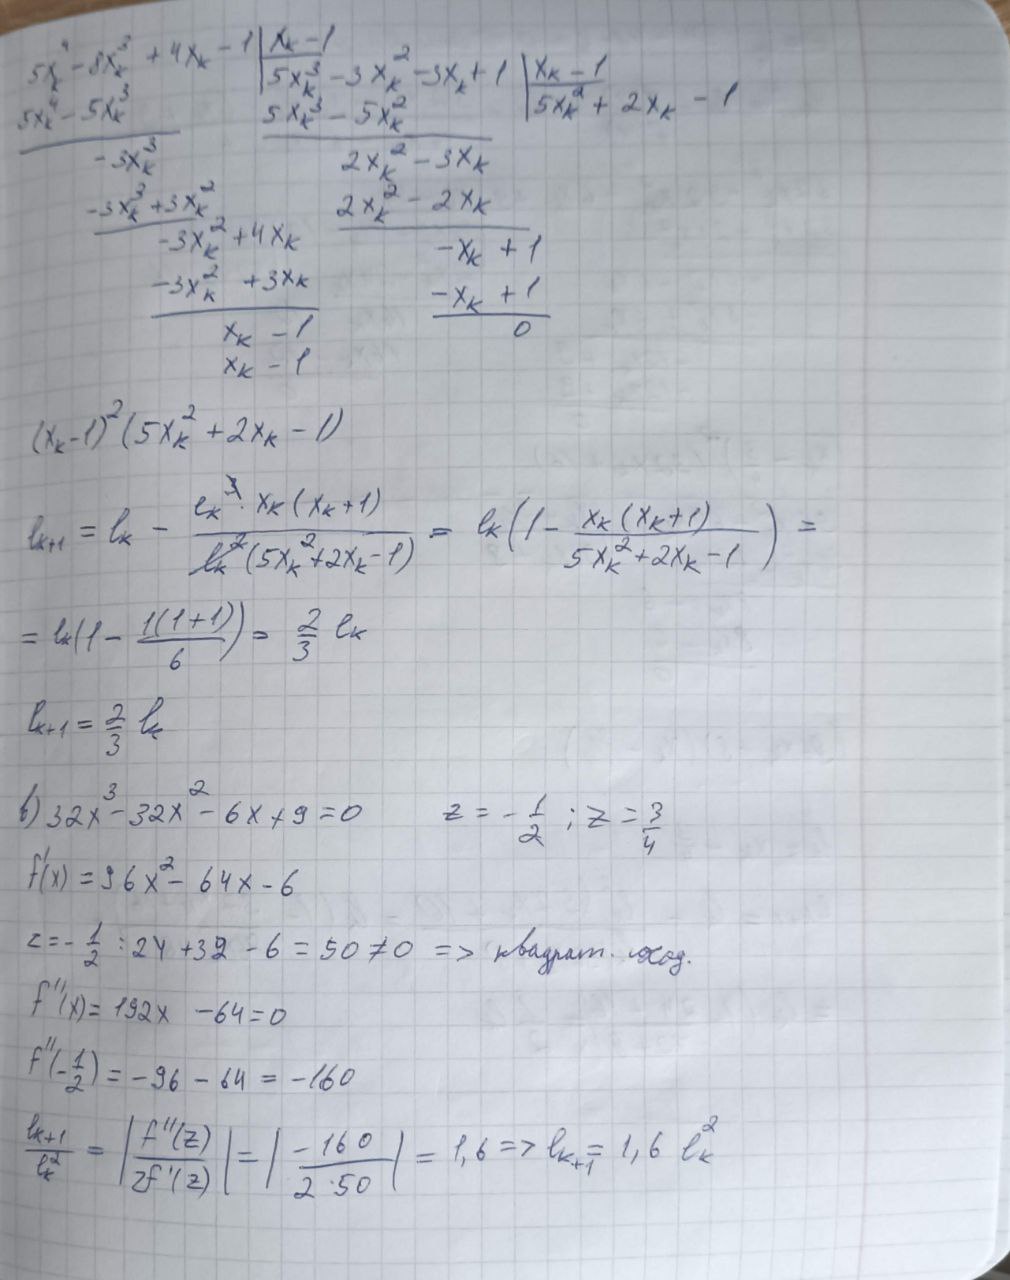 5xₖ⁴ - 8xₖ³ + 4xₖ - 1 | xₖ - 1
5xₖ⁴ - 5xₖ³ | 5xₖ³ - 3xₖ² - 3xₖ + 1 | xₖ - 1
-3xₖ³ 5xₖ³ - 5xₖ² | 5xₖ² + 2xₖ - 1
-3xₖ³ + 3xₖ² 2xₖ² - 3xₖ
-3xₖ² + 4xₖ 2xₖ² - 2xₖ
-3xₖ² + 3xₖ -xₖ + 1
xₖ - 1 -xₖ + 1
xₖ - 1 0
(xₖ-1)² (5xₖ² + 2xₖ - 1)
lₖ₊₁ = lₖ - (lₖ³ · xₖ(xₖ+1)) / (lₖ² (5xₖ² + 2xₖ - 1)) = lₖ (1 - (xₖ(xₖ+1)) / (5xₖ² + 2xₖ - 1)) =
= lₖ(1 - (1(1+1))/6) = 2/3 lₖ
lₖ₊₁ = 2/3 lₖ
в) 32x³ - 32x² - 6x + 9 = 0 z = -1/2 ; z = 3/4
f'(x) = 96x² - 64x - 6
z = -1/2 : 24 + 32 - 6 = 50 ≠ 0 => квадрат. сход.
f''(x) = 192x - 64 = 0
f''(-1/2) = -96 - 64 = -160
lₖ₊₁/lₖ² = |f''(z)/2f'(z)| = |-160/2·50| = 1,6 => lₖ₊₁ = 1,6 lₖ²